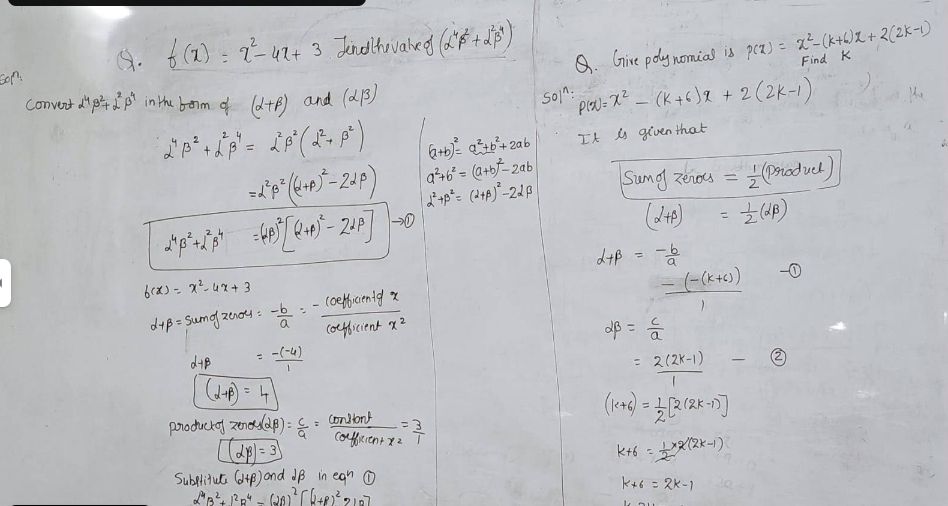 Q. f(x) = x² - 4x + 3 . find the value of (α⁴β² + α²β⁴)
Solⁿ.
Convert α⁴β² + α²β⁴ in the form of (α+β) and (αβ)
α⁴β² + α²β⁴ = α²β² (α² + β²)
= α²β² ((α+β)² - 2αβ)
α⁴β² + α²β⁴ = (αβ)² [(α+β)² - 2αβ] → ①
(a+b)² = a²+b²+2ab
a²+b² = (a+b)² - 2ab
α²+β² = (α+β)² - 2αβ
f(x) = x² - 4x + 3
α+β = Sum of zeroes = -b/a = - coefficient of x / coefficient x²
α+β = -(-4)/1
(α+β) = 4
product of zeroes (αβ) = c/a = constant / coefficient x² = 3/1
(αβ) = 3
Substitute (α+β) and αβ in eqn ①
α⁴β² + α²β⁴ = (αβ)² [(α+β)² 2αβ]
Q. Give polynomial is p(x) = x² - (k+6)x + 2(2k-1)
Find K
Solⁿ: p(x) = x² - (k+6)x + 2(2k-1)
It is given that
Sum of zeroes = 1/2 (product)
(α+β) = 1/2 (αβ)
α+β = -b/a
- (-(k+6)) / 1 - ①
αβ = c/a
= 2(2k-1) / 1 - ②
(k+6) = 1/2 [2(2k-1)]
k+6 = 1/2 × 2(2k-1)
k+6 = 2k-1